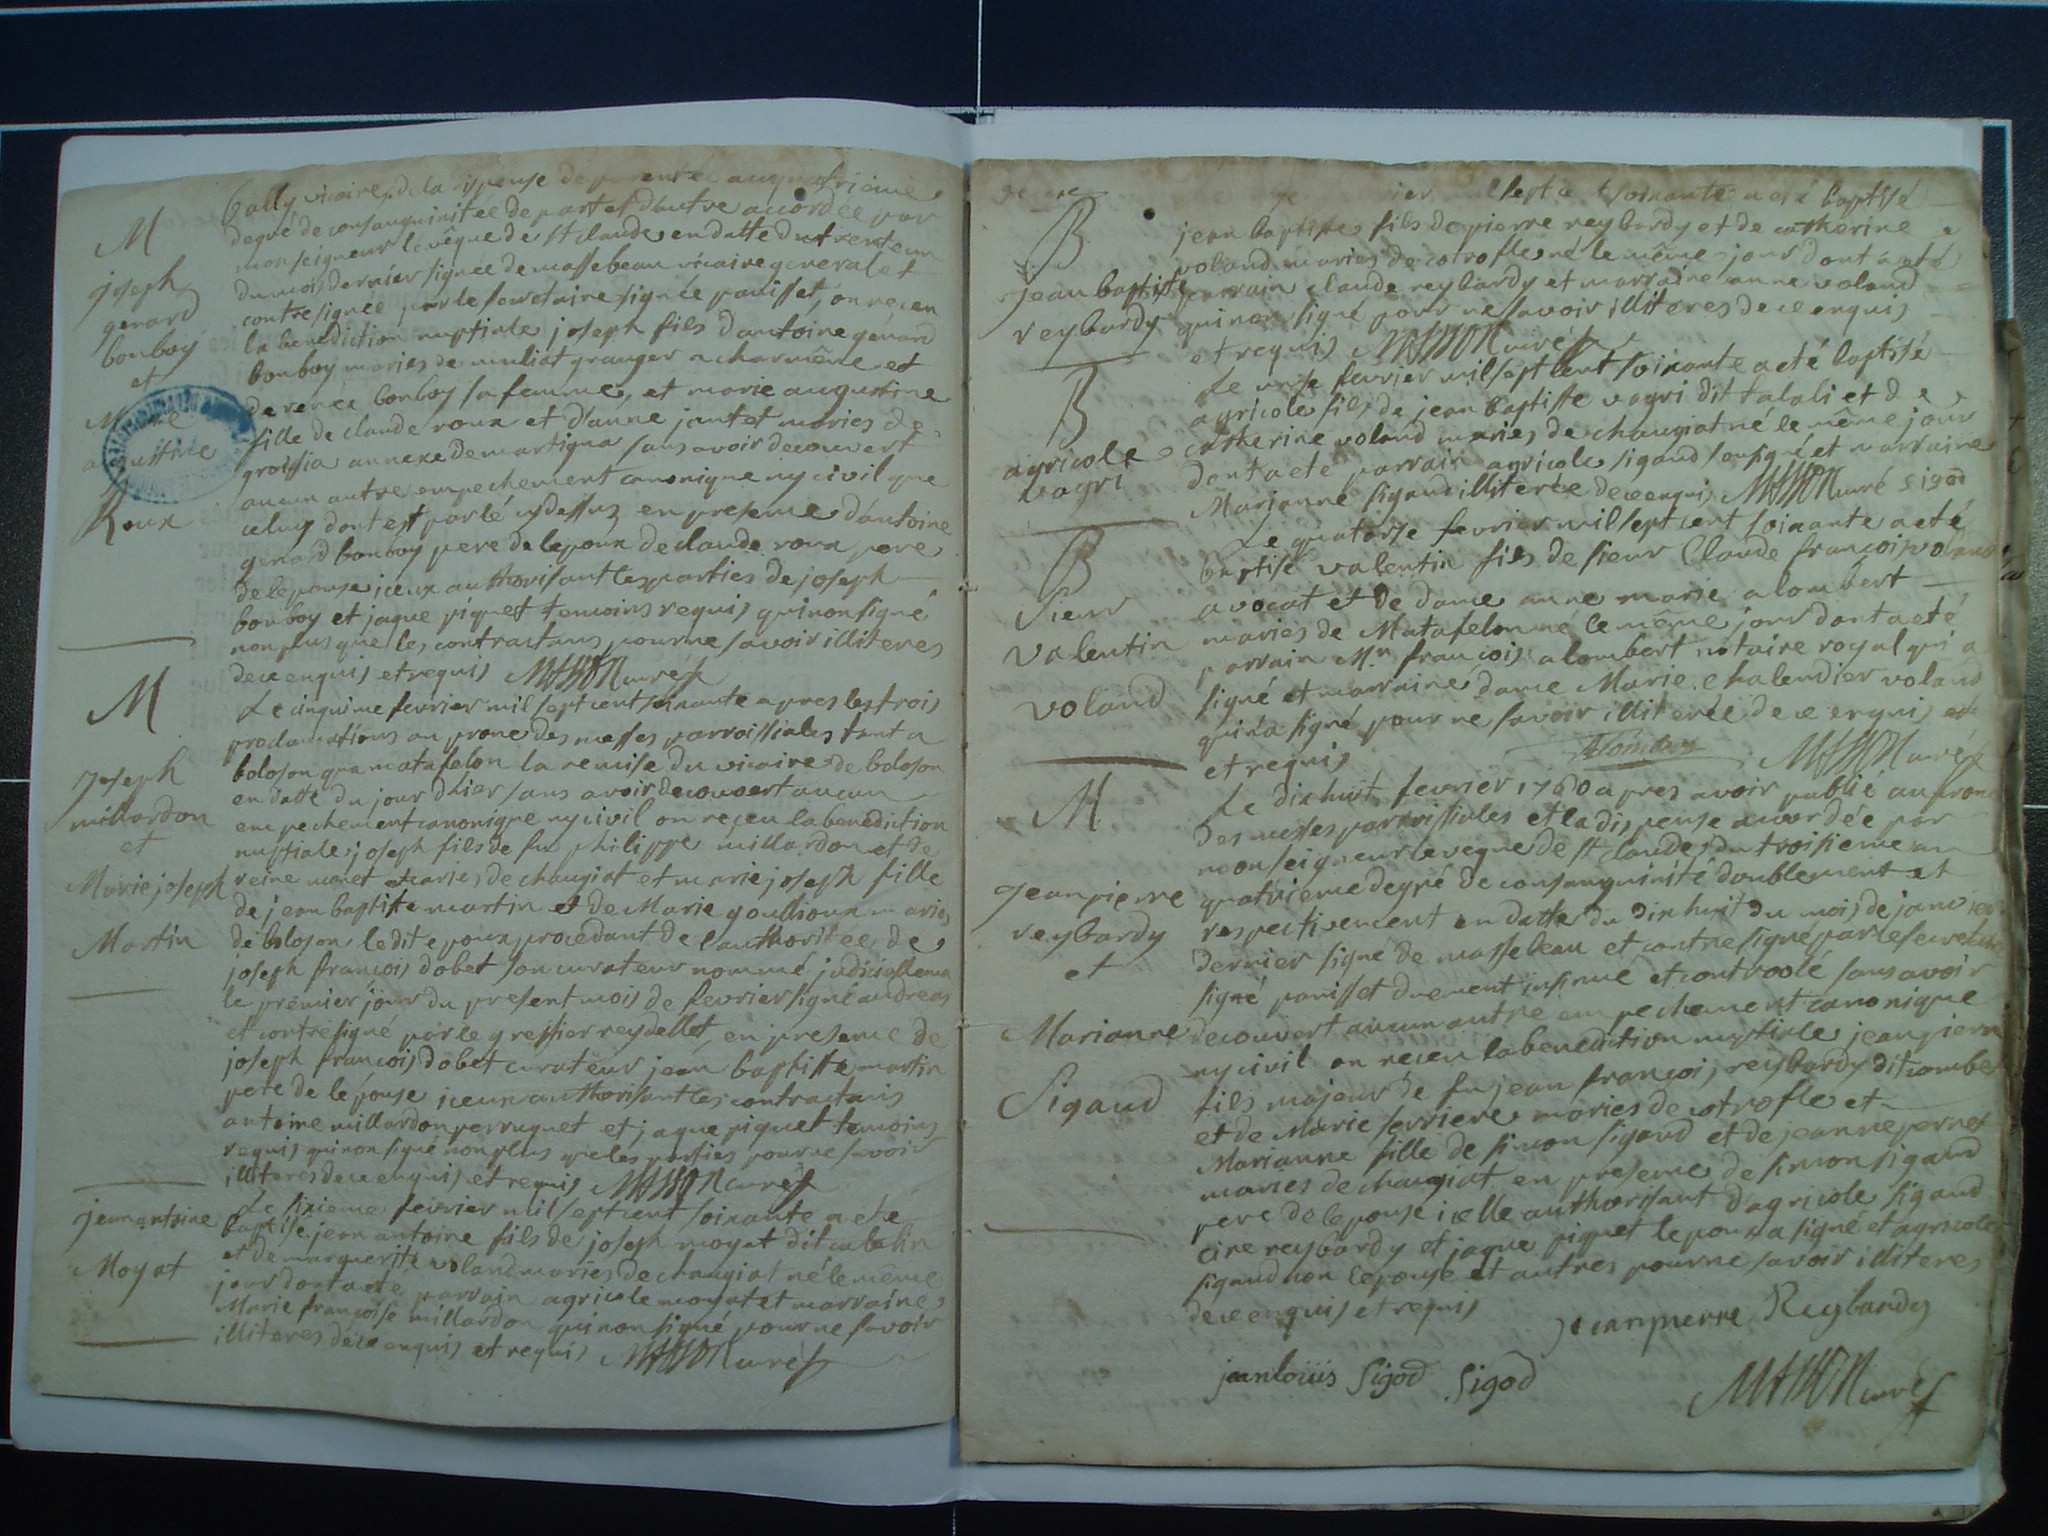 M
joseph
genard
bonboy
et
Marie
augustine
Roux
bally vicaire, de la dispense de parenté au quatrieme
degré de consanguinitée de part et d'autre accordée par
monseigneur levêque de st claude en datte du trente un
du mois dernier signée de massebeau vicaire general et
contresignée par le secretaire signée panisset, on receu
la benediction nuptiale joseph fils d'antoine genard
bonboy maries de muliat granger a charmême et
de renée bonboy sa femme, et marie augustine
fille de claude roux et d'anne jantet maries de
groissia annexe de martigna sans avoir decouvert
aucun autre empechement canonique ny civil que
celuy dont est parlé cydessus en presence d'antoine
genard bonboy pere de lepoux de claude roux pere
de lepouse iceux authorisant les parties de joseph
bonboy et jaque piquet temoins requis qui non signé
non plus que les contractans pour ne savoir illiteres
de ce enquis et requis MASSON curé
M
joseph
millardon
et
Marie joseph
Martin
Le cinquime fevrier mil sept cent soixante apres les trois
proclamations au prone des messes parroissiales tant a
boloson qua matafelon la remise du vicaire de boloson
en datte du jour dhier sans avoir decouvert aucun
empechement canonique ny civil on receu la benediction
nuptiale joseph fils de fu philippe millardon et de
reine monet maries de changiat et marie joseph fille
de jean baptiste martin et de Marie goullioux maries
de boloson ledit epoux procedant de l'authoritee de
joseph françois dobet son curateur nommé judiciallement
le premier jour du present mois de fevrier signé andreas
et contresigné par le greffier reydellet, en presence de
joseph françois dobet curateur jean baptiste martin
pere de lépouse iceux authorisant les contractans
antoine millardon perruquet et jaque piquet temoins
requis qui non signé non plus que les parties pour ne savoir
illiteres de ce enquis et requis MASSON curé
jean antoine
Moyat
Le sixieme fevrier mil sept cent soixante a eté
baptisé jean antoine fils de joseph moyat dit
et de marguerite voland maries de changiat né le même
jour dont acte parrain agricole moyat et marraine
Marie françoise millardon qui non signé pour ne savoir
illiteres de ce enquis et requis MASSON curé
B
Jean baptiste
reybardy
sept cent soixante a eté baptisé
jean baptiste fils de pierre reybardy et de catherine
voland maries de cotrofle né le même jour dont acte
parrain claude reybardy et marraine anne voland
qui non signé pour ne savoir illiteres de ce enquis
et requis MASSON curé
B
agricole
vagri
Le onse fevrier mil sept cent soixante a eté baptisé
agricole fils de jean baptiste vagri dit talali et de
catherine voland maries de changiat né le même jour
dont acte parrain agricole sigaud soussigné et marraine
Marianne sigaud illiterée de ce enquis MASSON curé Sigod
B
Sieur
valentin
voland
Le quatorze fevrier mil sept cent soixante a eté
baptisé valentin fils de sieur Claude françois voland
avocat et de dame anne marie alombert
maries de Matafelon né le même jour dont acte
parrain Mr. françois alombert notaire royal qui a
signé et marraine dame Marie chalendier voland
qui na signé pour ne savoir illiterée de ce enquis et
et requis
Alombert MASSON curé
M
Jean pierre
reybardy
et
Marianne
Sigaud
Le dixhuit fevrier 1760 apres avoir publié au prone
des messes parroissiales et la dispense accordée par
monseigneur leveque de st claude du troisieme au
quatrieme degré de consanguinité doublement et
respectivement en datte du dixhuit du mois de janvier
dernier signé de massebeau et contresigné par le secretaire
signé panisset duement insinué et controolé sans avoir
decouvert aucun autre empechement canonique
ny civil on receu la benediction nuptiale jean pierre
fils majeur de fu jean françois reybardy dit combet
et de Marie ferriere maries de cotrofle et
Marianne fille de simon sigaud et de jeanne pernet
maries de changiat en presence de simon sigaud
pere de lepouse icelle authorisant d'agricole sigaud
cire reybardy et jaque piquet lepoux a signé et agricole
sigaud non lepouse et autres pour ne savoir illiteres
de ce enquis et requis
jeanpierre Reybardy
jeanloüis Sigod Sigod
MASSON curé